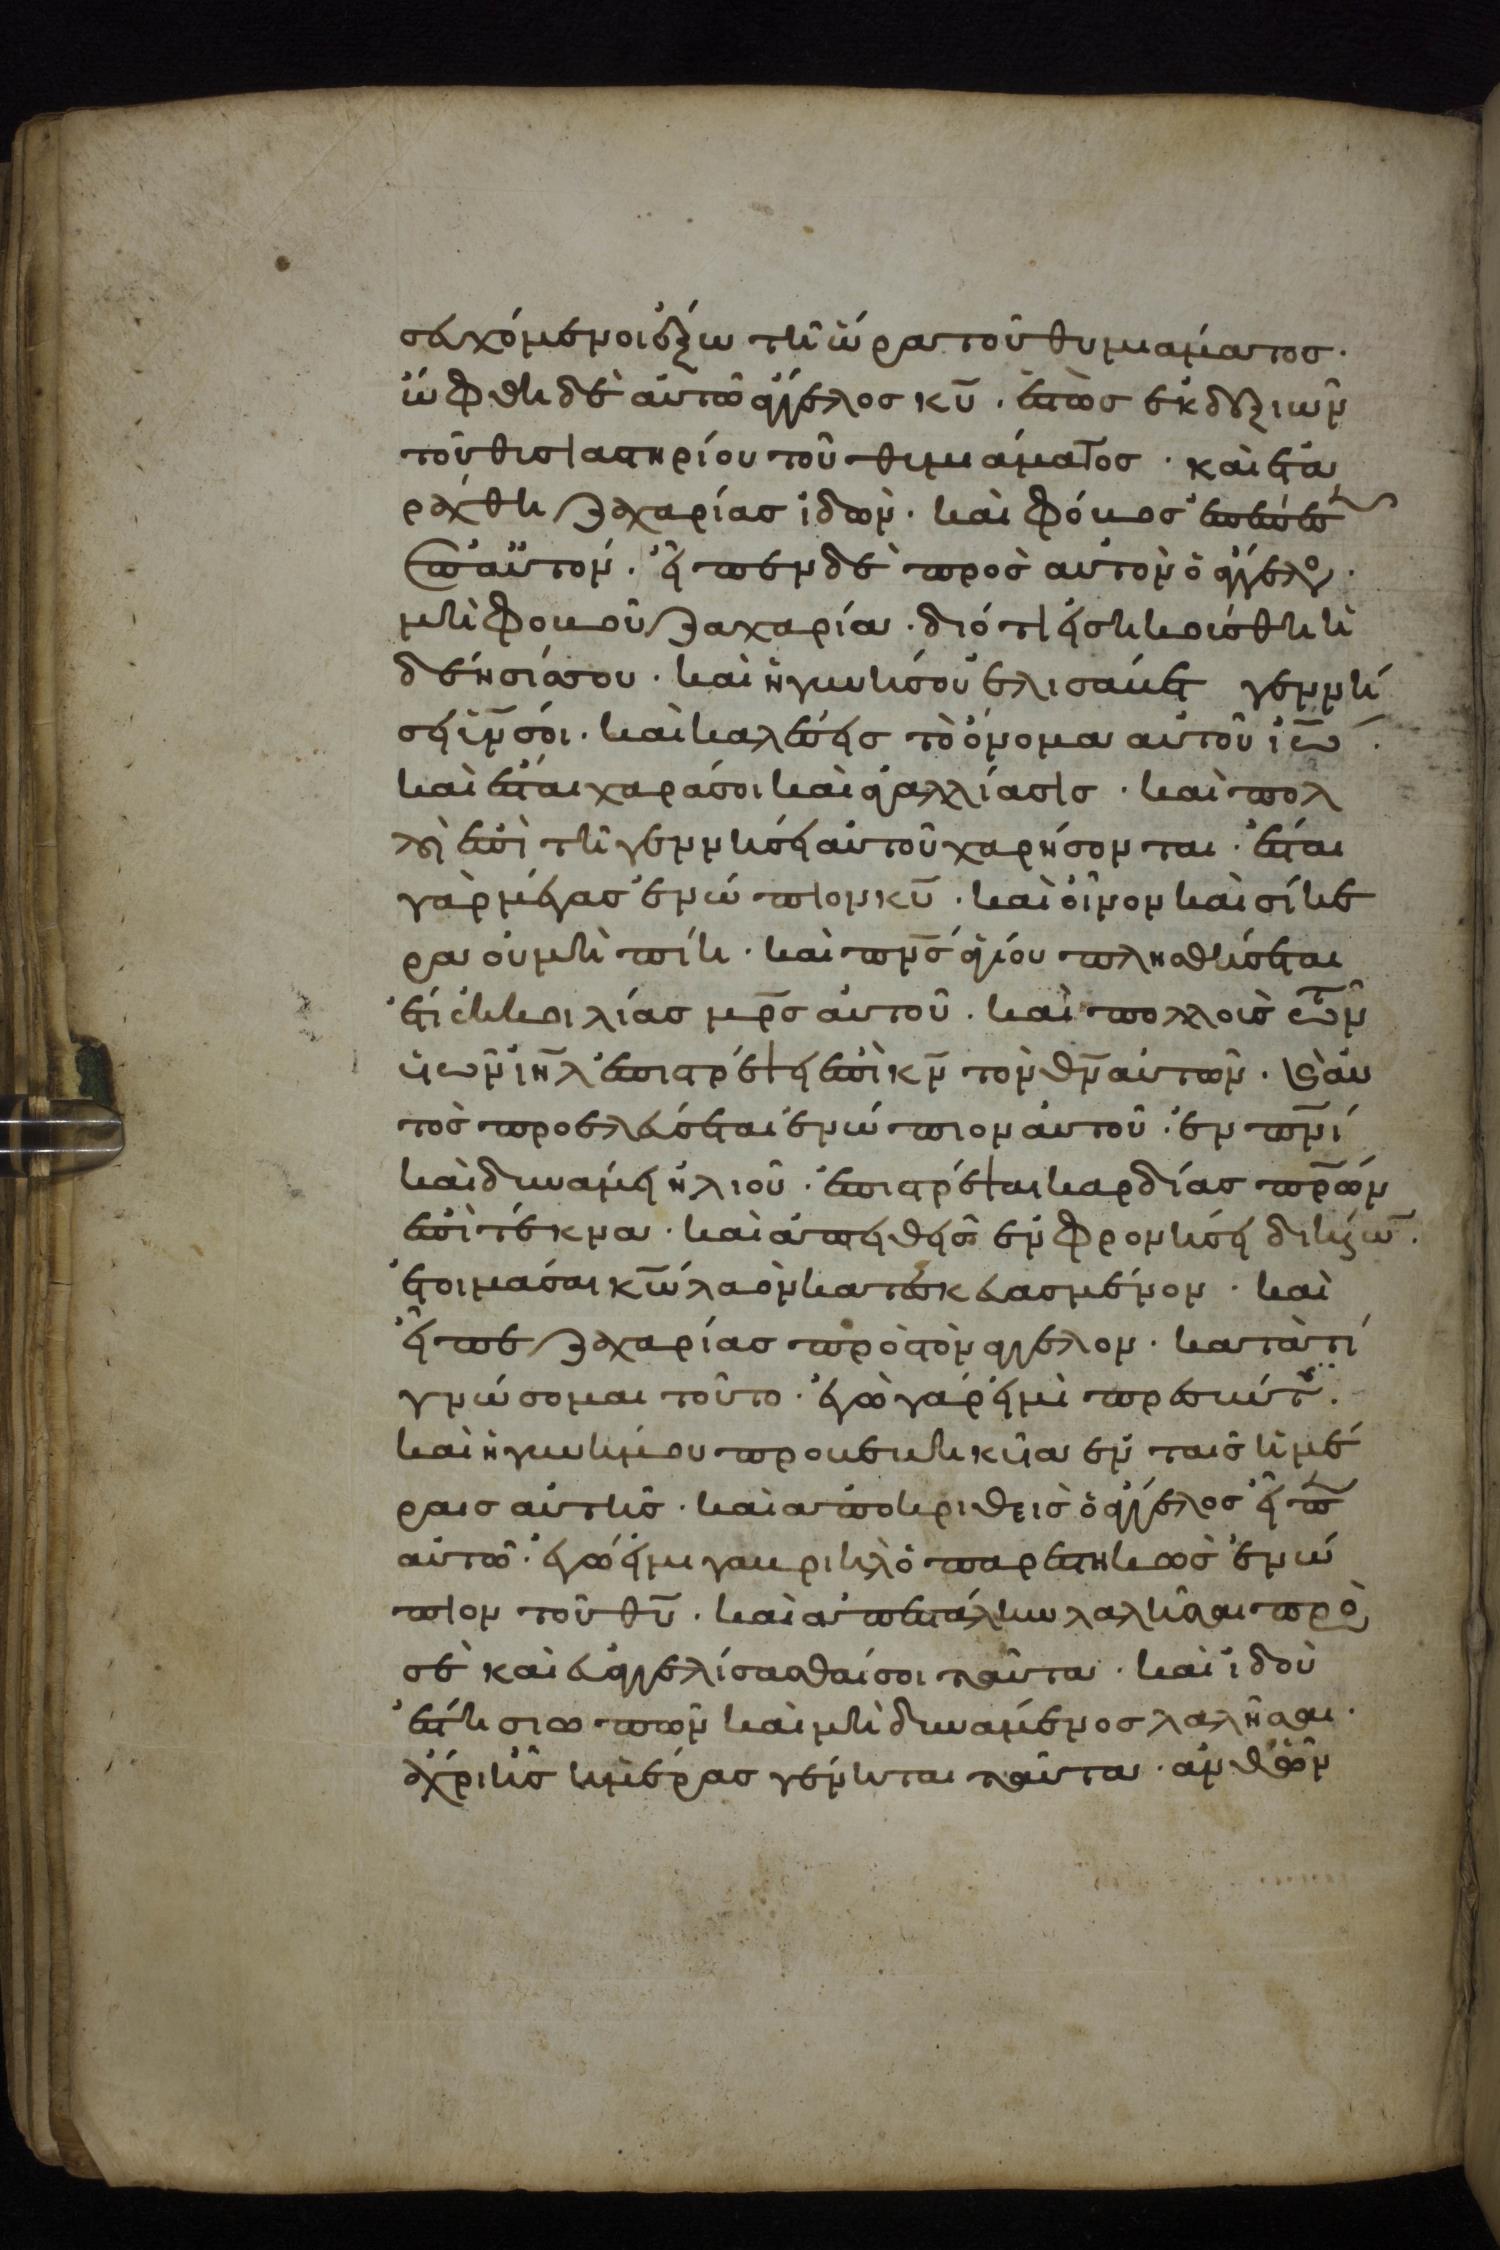 σευχόμενοι ἔξω τῆ ὥρα τοῦ θυμιάματος·
ὤφθη δὲ αὐτῶ ἄγγελος κ̅υ̅· ἑστὼς ἐκ δεξιῶν
τοῦ θυσιαστηρίου τοῦ θυμιάματος· καὶ ἐτα
ράχθη Ζαχαρίας ἰδών· καὶ φόβος ἐπέπε
σεν ἐπ αὐτόν· εἶπεν δὲ πρὸς αὐτὸν ὁ ἄγγελος·
μὴ φοβοῦ Ζαχαρία· διότι εἰσηκούσθη ἡ
δέησίς σου· καὶ ἡ γυνή σου ἐλισάβετ γεννή
σει υ̅ν̅ σοι· καὶ καλέσεις τὸ ὄνομα αὐτοῦ ἰ̅ω̅·
καὶ ἔσται χαρά σοι καὶ ἀγαλλίασις· καὶ πολ
λοὶ ἐπὶ τῆ γεννήσει αὐτοῦ χαρήσονται· ἔσται
γὰρ μέγας ἐνώπιον κ̅υ̅· καὶ οἶνον καὶ σίκε
ρα οὐ μὴ πίη· καὶ π̅ν̅ς̅ ἁγίου πλησθήσεται
ἔτι ἐκ κοιλίας μ̅ρ̅ς̅ αὐτοῦ· καὶ πολλοὺς τῶν
υἱῶν ἰ̅η̅λ̅ ἐπιστρέψει ἐπὶ κ̅ν̅ τὸν θ̅ν̅ αὐτῶν· καὶ αὐ
τὸς προελεύσεται ἐνώπιον αὐτοῦ· ἐν π̅ν̅ι̅
καὶ δυνάμει ἠλιοῦ· ἐπιστρέψαι καρδίας π̅ρ̅ων
ἐπὶ τέκνα· καὶ ἀπειθεῖς ἐν φρονήσει δικαίων·
ἑτοιμάσαι κ̅ω̅ λαὸν κατεσκευασμένον· καὶ
εἶπε Ζαχαρίας πρὸς τὸν ἄγγελον· κατὰ τί
γνώσομαι τοῦτο· ἐγὼ γάρ εἰμι πρεσβύτης·
καὶ ἡ γυνή μου προβεβηκυῖα ἐν ταῖς ἡμέ
ραις αὐτῆς· καὶ ἀποκριθεὶς ὁ ἄγγελος εἶπεν
αὐτῶ· ἐγώ εἰμι γαβριὴλ ὁ παρεστηκὼς ἐνώ
πιον τοῦ θ̅υ̅· καὶ ἀπεστάλην λαλῆσαι πρὸς
σὲ καὶ εὐαγγελίσασθαί σοι ταῦτα· καὶ ἰδοὺ
ἔση σιωπῶν καὶ μὴ δυνάμενος λαλῆσαι·
ἄχρι ἧς ἡμέρας γένηται ταῦτα· ἀνθ ὧν